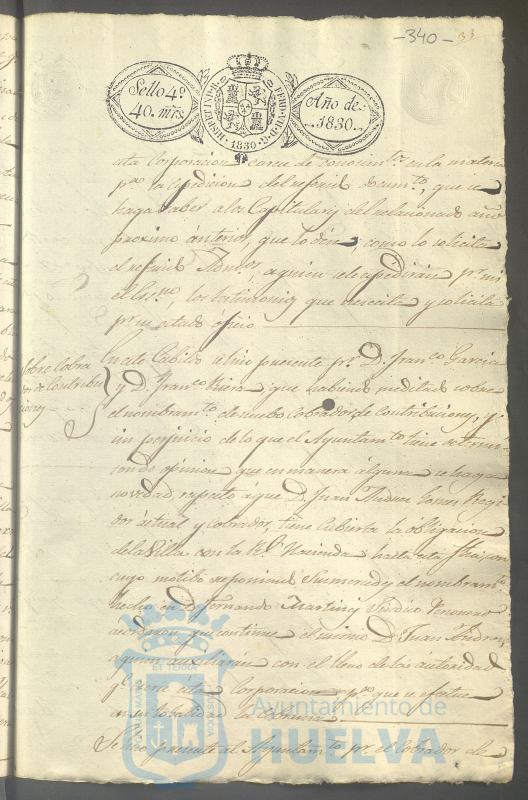 -340-
33
Sello 4º
40. mrs.
HISP. ET IND. R. FERD. VII. D. G.
1830
Año de
1830.
esta Corporacion carece de conocimto. en la materia
pª. la expedicion del referido documto., que se
haga saber a los Capitulares del relacionado año
proximo anterior, que lo dén, como lo solicita
el referido, aquien se le expedirán pr. mi
el Essno. los testimonios que necesita y solicita
pr. su citado oficio
Sobre Cobra
dor de Contribu
ciones
En este Cabildo se hizo presente pr. D. Franco. Garcia
y D. Franco. Riera que habiendo meditado sobre
el nombramto. de nuebo Cobrador de Contribuciones, y
sin perjuicio de lo que el Ayuntamto. tiene
opinion que en manera alguna se haga
novedad respecto á que D. Juan Andres Regi
dor actual y Cobrador, tiene cubierta la obligacion
de la Villa con la Rl. Hacienda hasta esta
cuyo motibo el nombramto.
hecho en D. Fernando Martinez Sindico Personero
acordaron que continue el mismo D. Juan Andres,
aquien auxiliarán con el lleno de las autoridad
qe. tiene esta Corporacion pª. que se efectue
en su totalidad la cobranza
Se hizo presente al Ayuntamto. pr. el Cobrador de
ET TERRAE
PORTUS MARIS
CUSTODIA
Ayuntamiento de
HUELVA